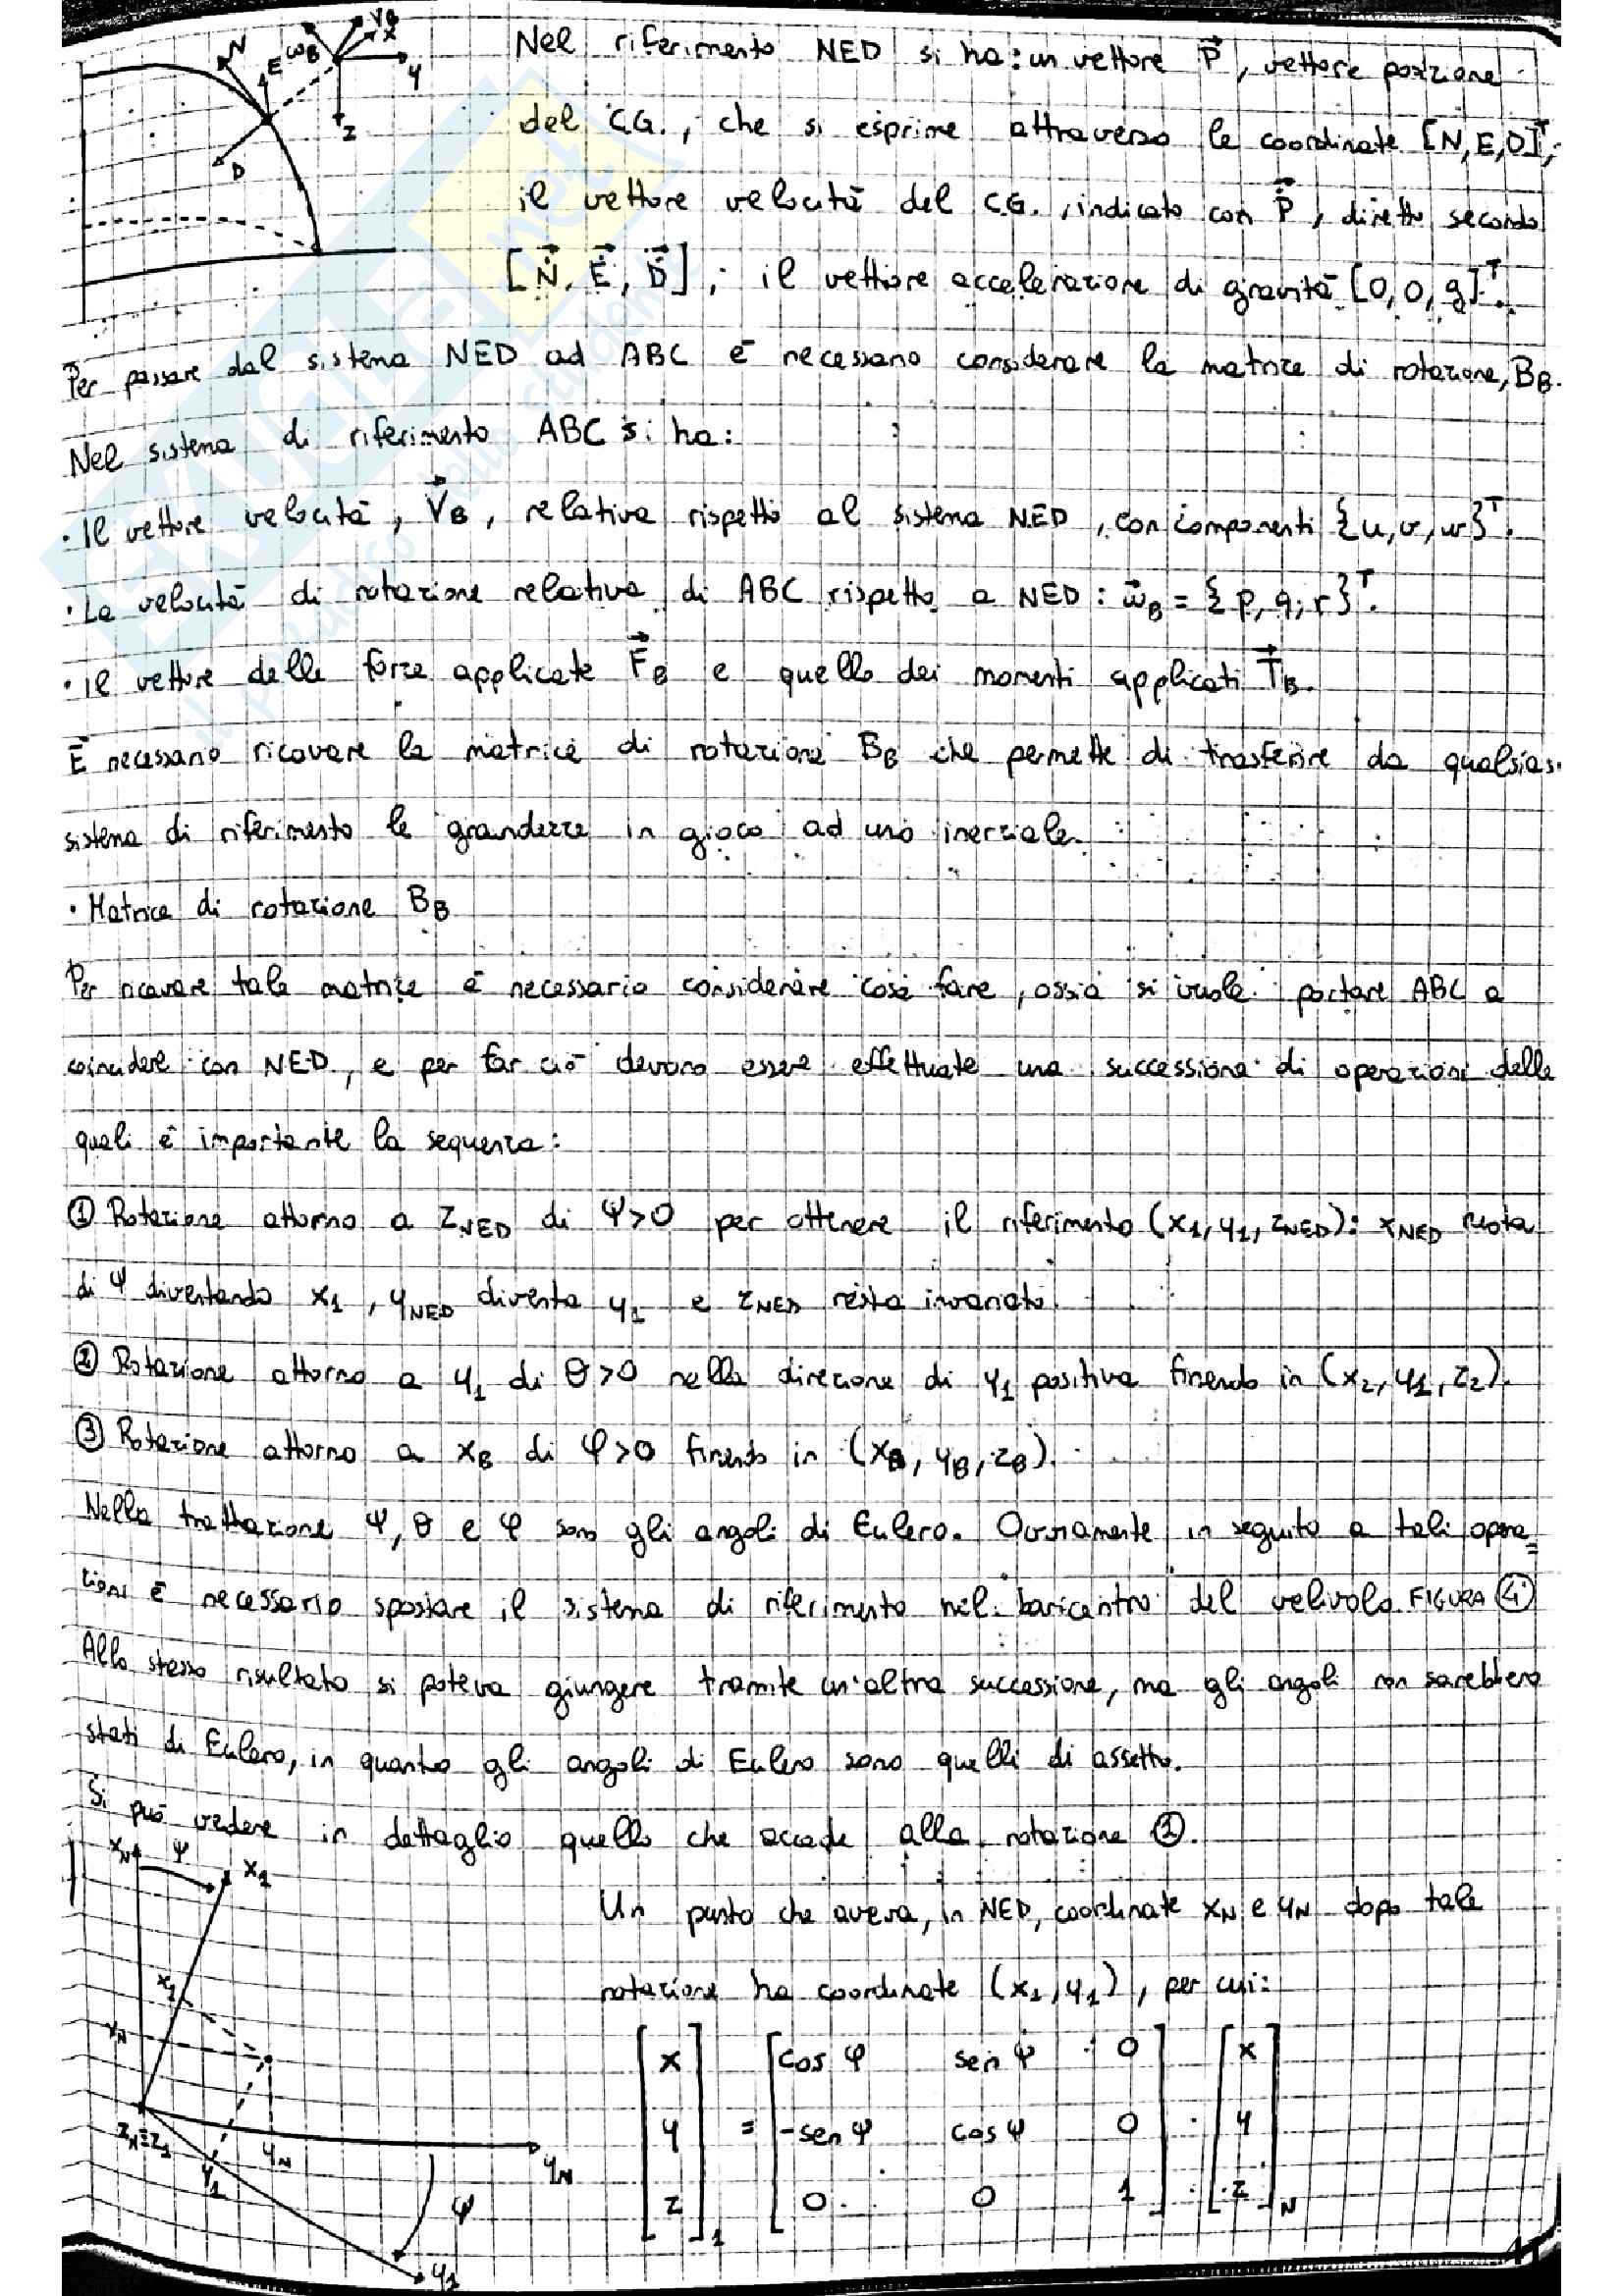 Nel riferimento NED si ha: un vettore P, vettore posizione
del C.G., che si esprime attraverso le coordinate [N, E, D]ᵀ,
il vettore velocità del C.G., indicato con Ṗ, diretto secondo
[Ṅ, Ė, Ḋ]; il vettore accelerazione di gravità [0, 0, g]ᵀ.
Per passare dal sistema NED ad ABC è necessario considerare la matrice di rotazione, B_B.
Nel sistema di riferimento ABC si ha:
· Il vettore velocità, V_B, relativa rispetto al sistema NED, con componenti {u, v, w}ᵀ.
· La velocità di rotazione relativa di ABC rispetto a NED: ω_B = {p, q, r}ᵀ.
· Il vettore delle forze applicate F_B e quello dei momenti applicati T_B.
È necessario ricavare la matrice di rotazione B_B che permette di trasferire da qualsias.
sistema di riferimento le grandezze in gioco ad uno inerziale.
· Matrice di rotazione B_B
Per ricavare tale matrice è necessario considerare cosa fare, ossia si vuole portare ABC a
coincidere con NED, e per far ciò devono essere effettuate una successione di operazioni delle
quali è importante la sequenza:
① Rotazione attorno a z_NED di ψ>0 per ottenere il riferimento (x₁, y₁, z_NED): x_NED ruota
di ψ diventando x₁, y_NED diventa y₁ e z_NED resta invariato.
② Rotazione attorno a y₁ di θ>0 nella direzione di y₁ positiva finendo in (x₂, y₁, z₂).
③ Rotazione attorno a x_B di φ>0 finendo in (x_B, y_B, z_B).
Nella trattazione ψ, θ e φ sono gli angoli di Eulero. Ovviamente in seguito a tali opera=
zioni è necessario spostare il sistema di riferimento nel baricentro del velivolo. FIGURA ④
Allo stesso risultato si poteva giungere tramite un'altra successione, ma gli angoli non sarebbero
stati di Eulero, in quanto gli angoli di Eulero sono quelli di assetto.
Si può vedere in dettaglio quello che accade alla rotazione ①.
Un punto che aveva, in NED, coordinate x_N e y_N dopo tale
rotazione ha coordinate (x₁, y₁), per cui:
[x y z]₁ = [cos ψ sen ψ 0
-sen ψ cos ψ 0
0 0 1] · [x y z]_N
N E D ω_B V_B x y z
x_N ψ x₁
x₁
x_N
z_N≡z₁ y₁ y_N y_N
ψ
y₁
41